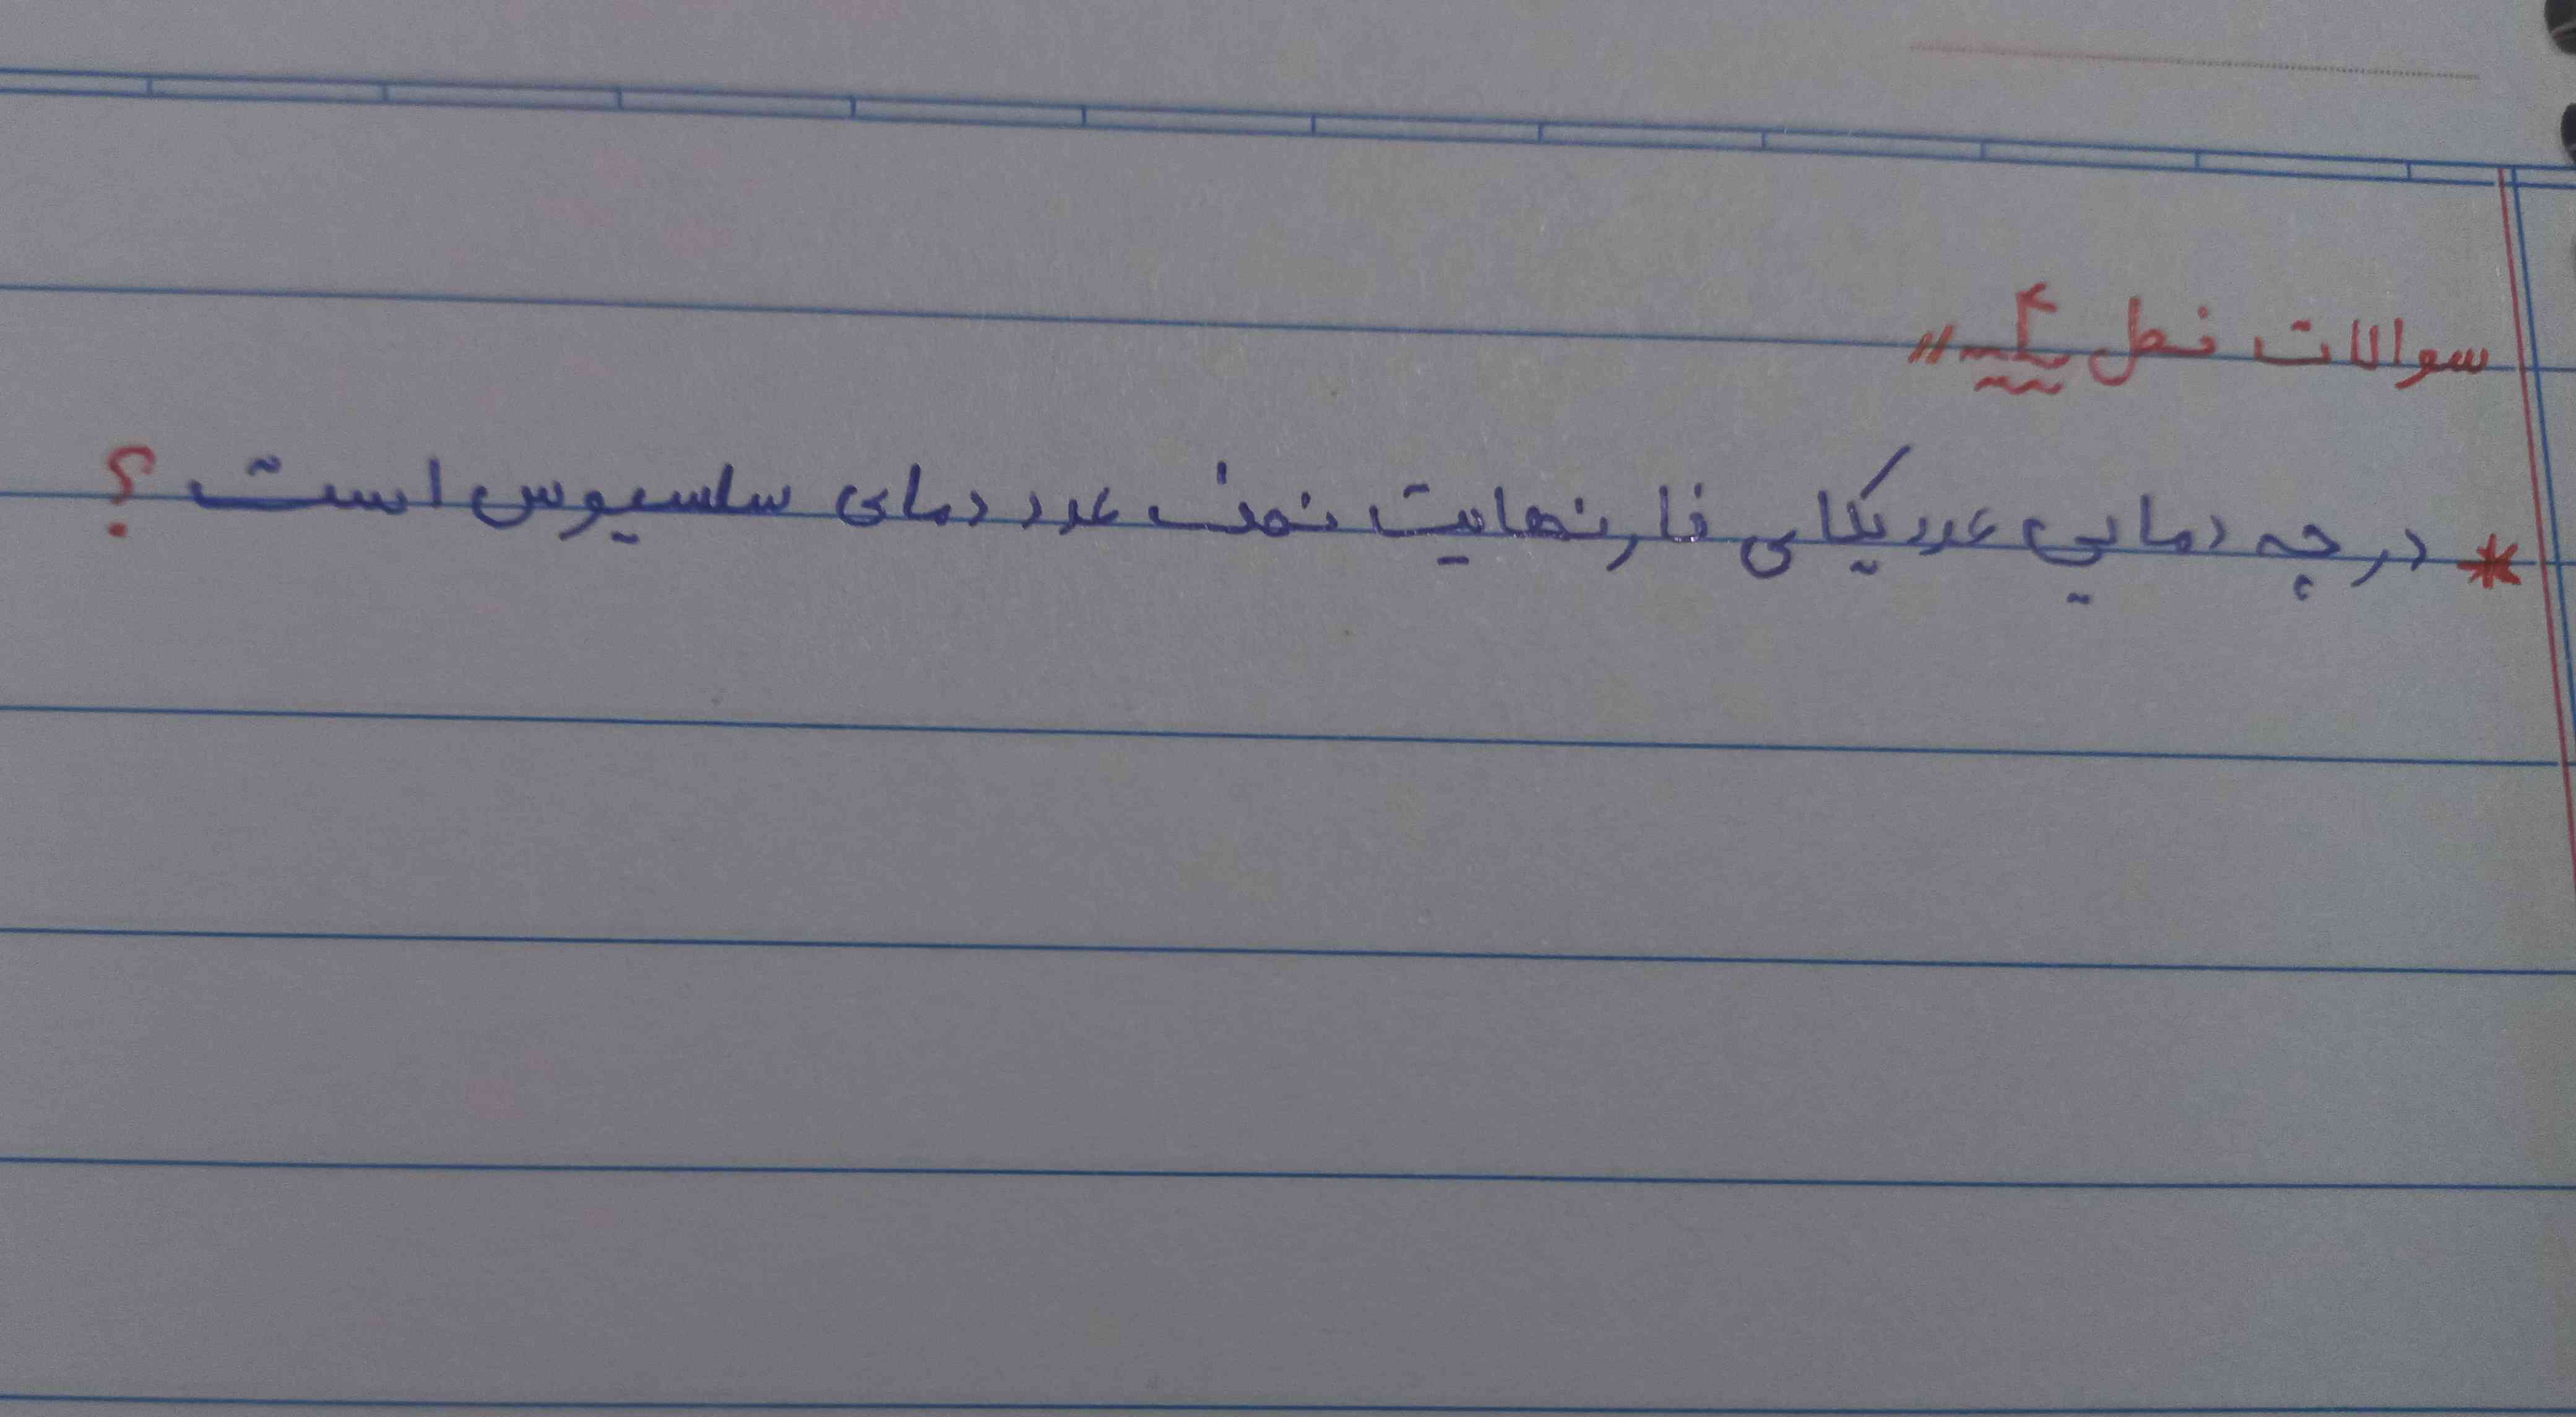 سوالات فصل ۴ "
* درچه دمایی عدد یکای فارنهایت نصف عدد دمای سلسیوس است ؟